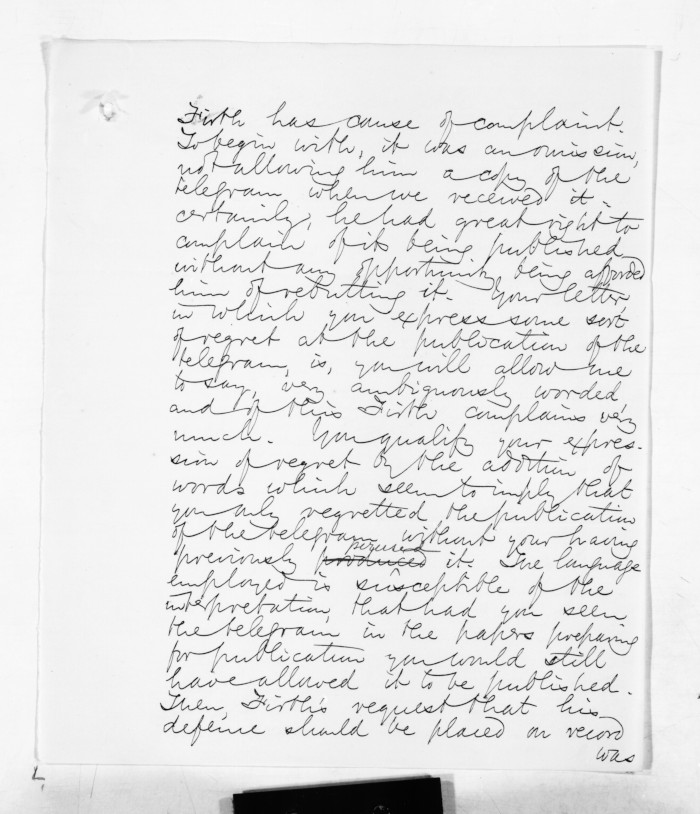 Firth has cause of complaint.
To begin with, it was an omission,
not allowing him a copy of the
telegram when we received it.
certainly, he had great right to
complain of its being published
without any opportunity being afforded
him of rebutting it. Your letter,
in which you express some sort
of regret at the publication of the
telegram, is, you will allow me
to say, very ambiguously worded
and of this Firth complains very
much. You qualify your expres-
sion of regret by the addition of
words which seem to imply that
you only regretted the publication
of the telegram without your having
perused
previously produced it. The language
employed is susceptible of the
interpretation, that had you seen
the telegram in the papers preparing
for publication you would still
have allowed it to be published.
Then, Firth's request that his
defence should be placed on record
was